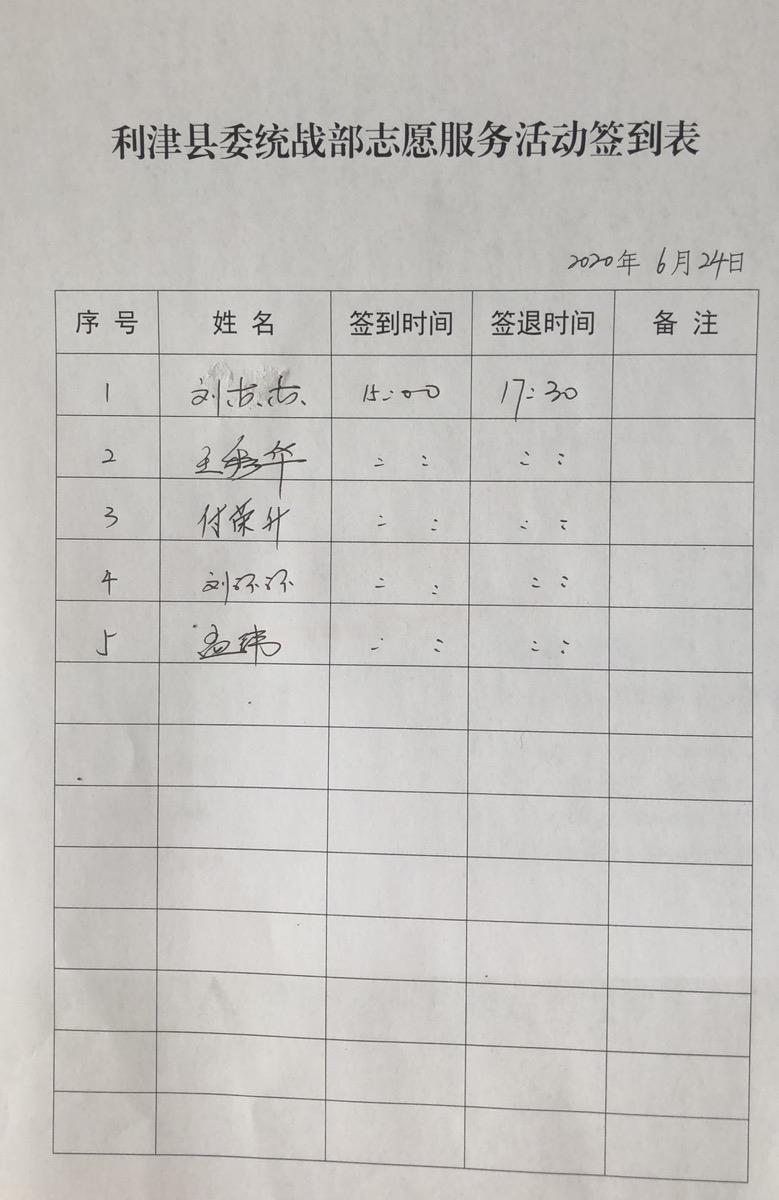 利津县委统战部志愿服务活动签到表
2020年 6月24日
序 号 姓 名 签到时间 签退时间 备 注
1 刘 15:00 17:30
2 王秀华 : : : :
3 付荣升 : : : :
4 刘环环 : : : :
5 孟玮 : : : :